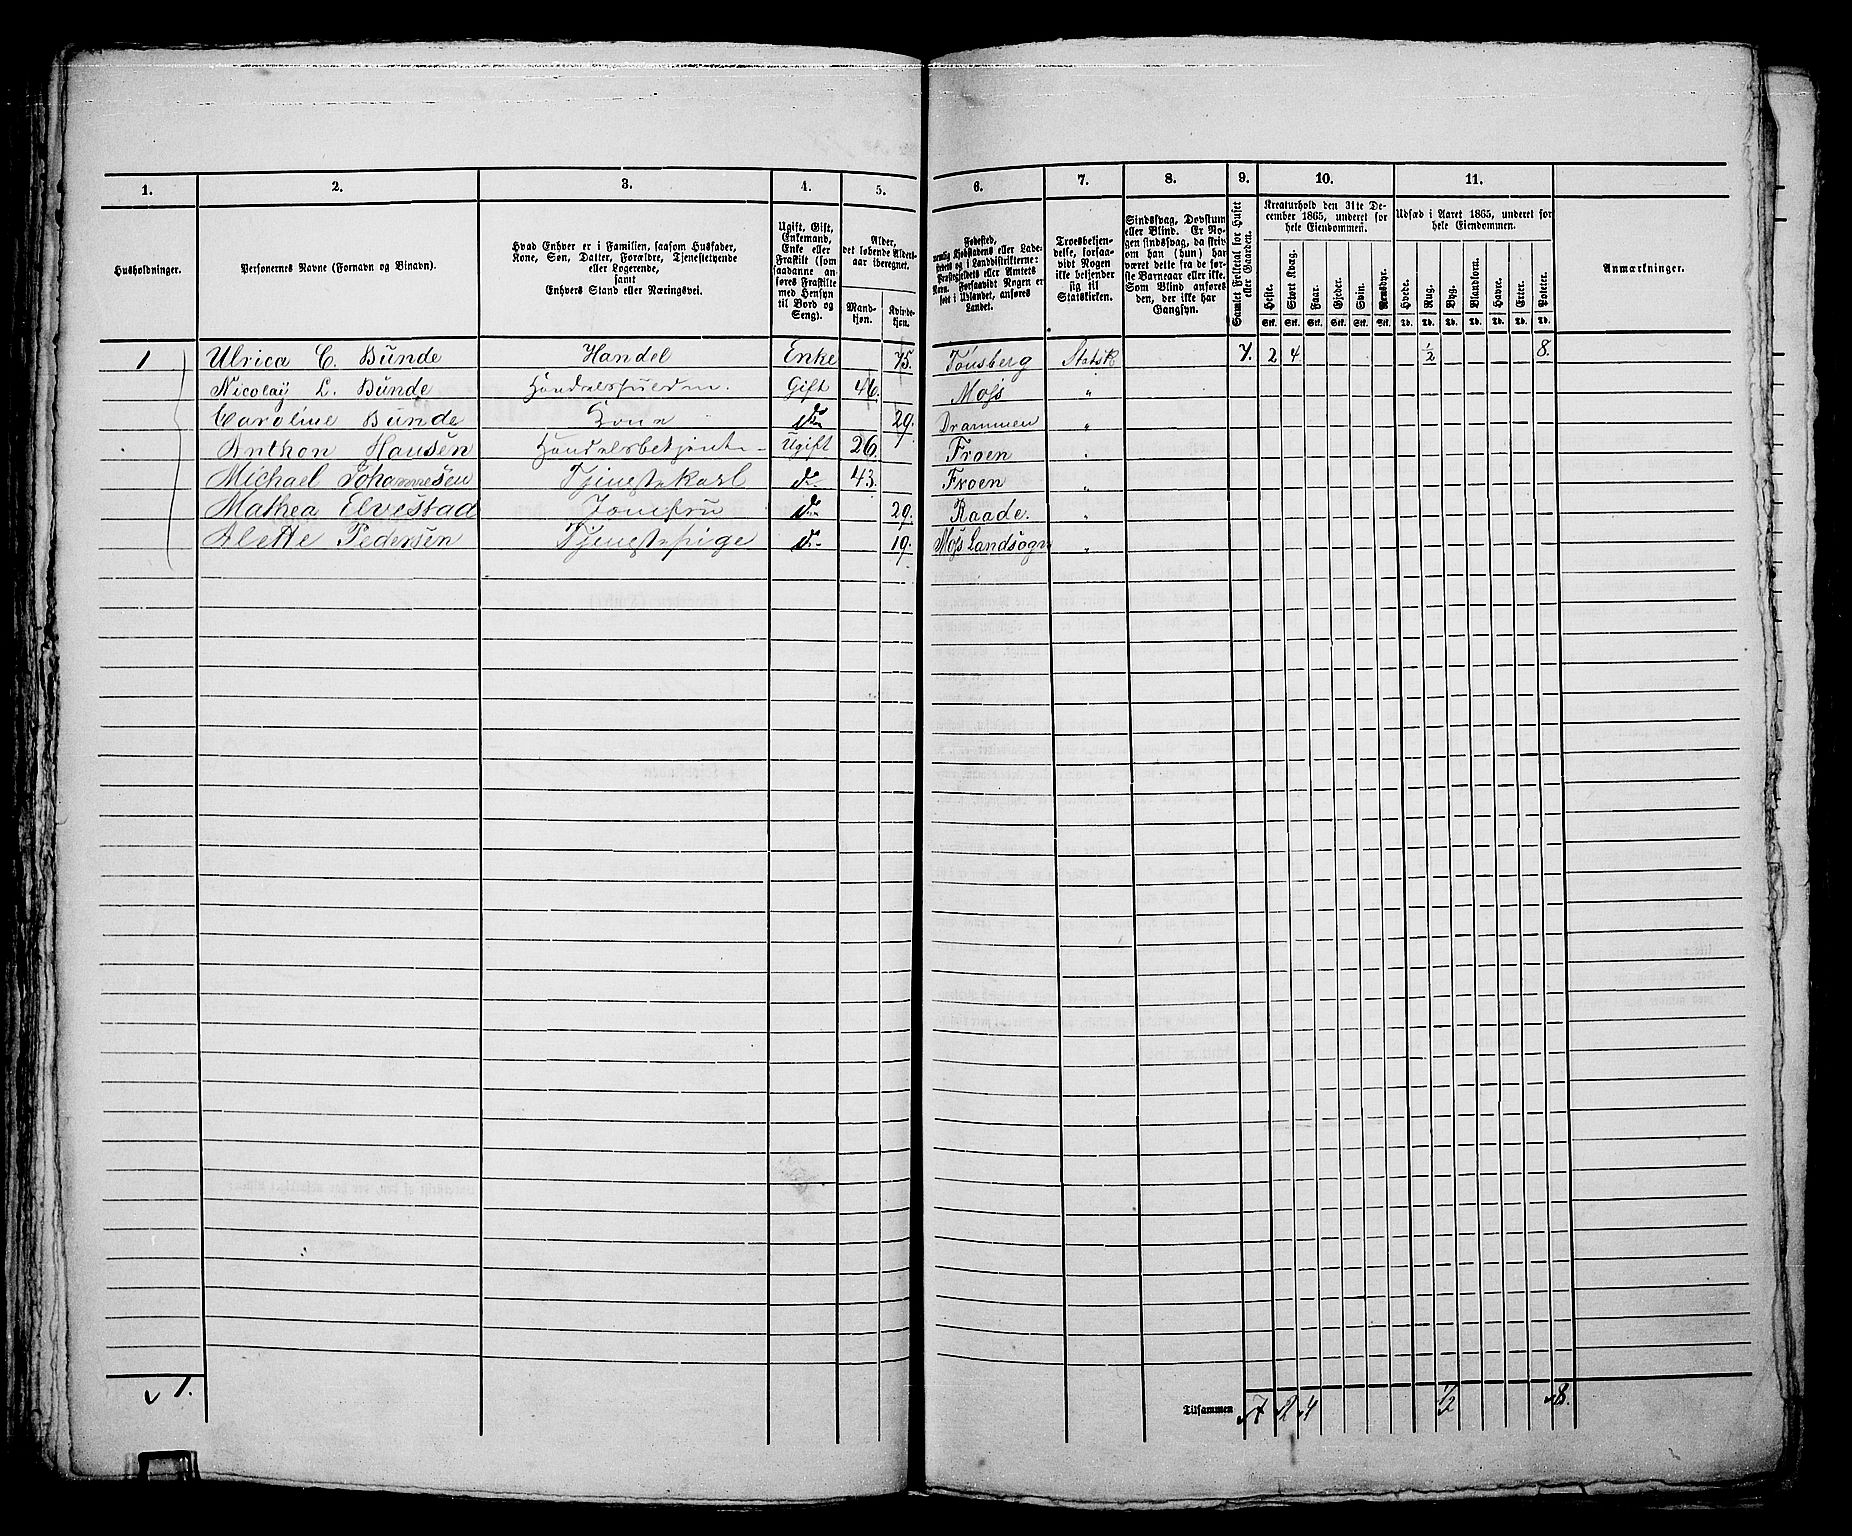 1. 2. 3. 4. 5. 6. 7. 8. 9. 10. 11.
Husholdninger.
Personernes Navne (Fornavn og Binavn).
Hvad Enhver er i Familien, saasom Husfader,
Kone, Søn, Datter, Forældre, Tjenestetyende
eller Logerende,
samt
Enhvers Stand eller Næringsvei.
Ugift, Gift,
Enkemand,
Enke eller
Fraskilt (som
saadanne an-
føres Fraskilte
med Hensyn
til Bord og
Seng).
Alder,
det løbende Alders-
aar iberegnet.
Mand-
kjøn.
Kvinde-
kjøn.
Fødested,
nemlig Kjøbstadens eller Lade-
stedets og i Landdistrikterne:
Præstegjeldets eller Amtets
Navn. Forsaavidt Nogen er
født i Udlandet, anføres
Landet.
Troesbekjen-
delse, forsaa-
vidt Nogen
ikke bekjender
sig til
Statskirken.
Sindssvag, Døvstum
eller Blind. Er No-
gen sindssvag, da skriv
om han (hun) har
været dette fra de før-
ste Barneaar eller ikke.
Som Blind anføres
den, der ikke har
Gangsyn.
Samlet Folketal for Huset
eller Gaarden.
Kreaturhold den 31te De-
cember 1865, underet for
hele Eiendommen.
Heste. Stort Kvæg. Faar. Gjeder. Svin. Rensdyr.
Stk. Stk. Stk. Stk. Stk. Stk.
Udsæd i Aaret 1865, underet for
hele Eiendommen.
Hvede. Rug. Byg. Blandkorn. Havre. Erter. Poteter.
Td. Td. Td. Td. Td. Td. Td.
Anmærkninger.
1 Ulrica C. Bunde Handel Enke 75. Tönsberg Statsk 7. 2 4 1/2 8.
Nicolaÿ L. Bunde Gift 46. Mofs "
Caroline Bunde Kone do 29. Drammen "
Anthon Hansen Handelsbetjent Ugift 26. Froen "
Michael Johannesen Tjenestekarl do 43. Froen "
Mathea Elvestad Jomfru do 29. Raade. "
Alette Pedersen Tjenestepige do 19. Mofs Landsogn "
1.
Tilsammen 7 2 4 1/2 8.